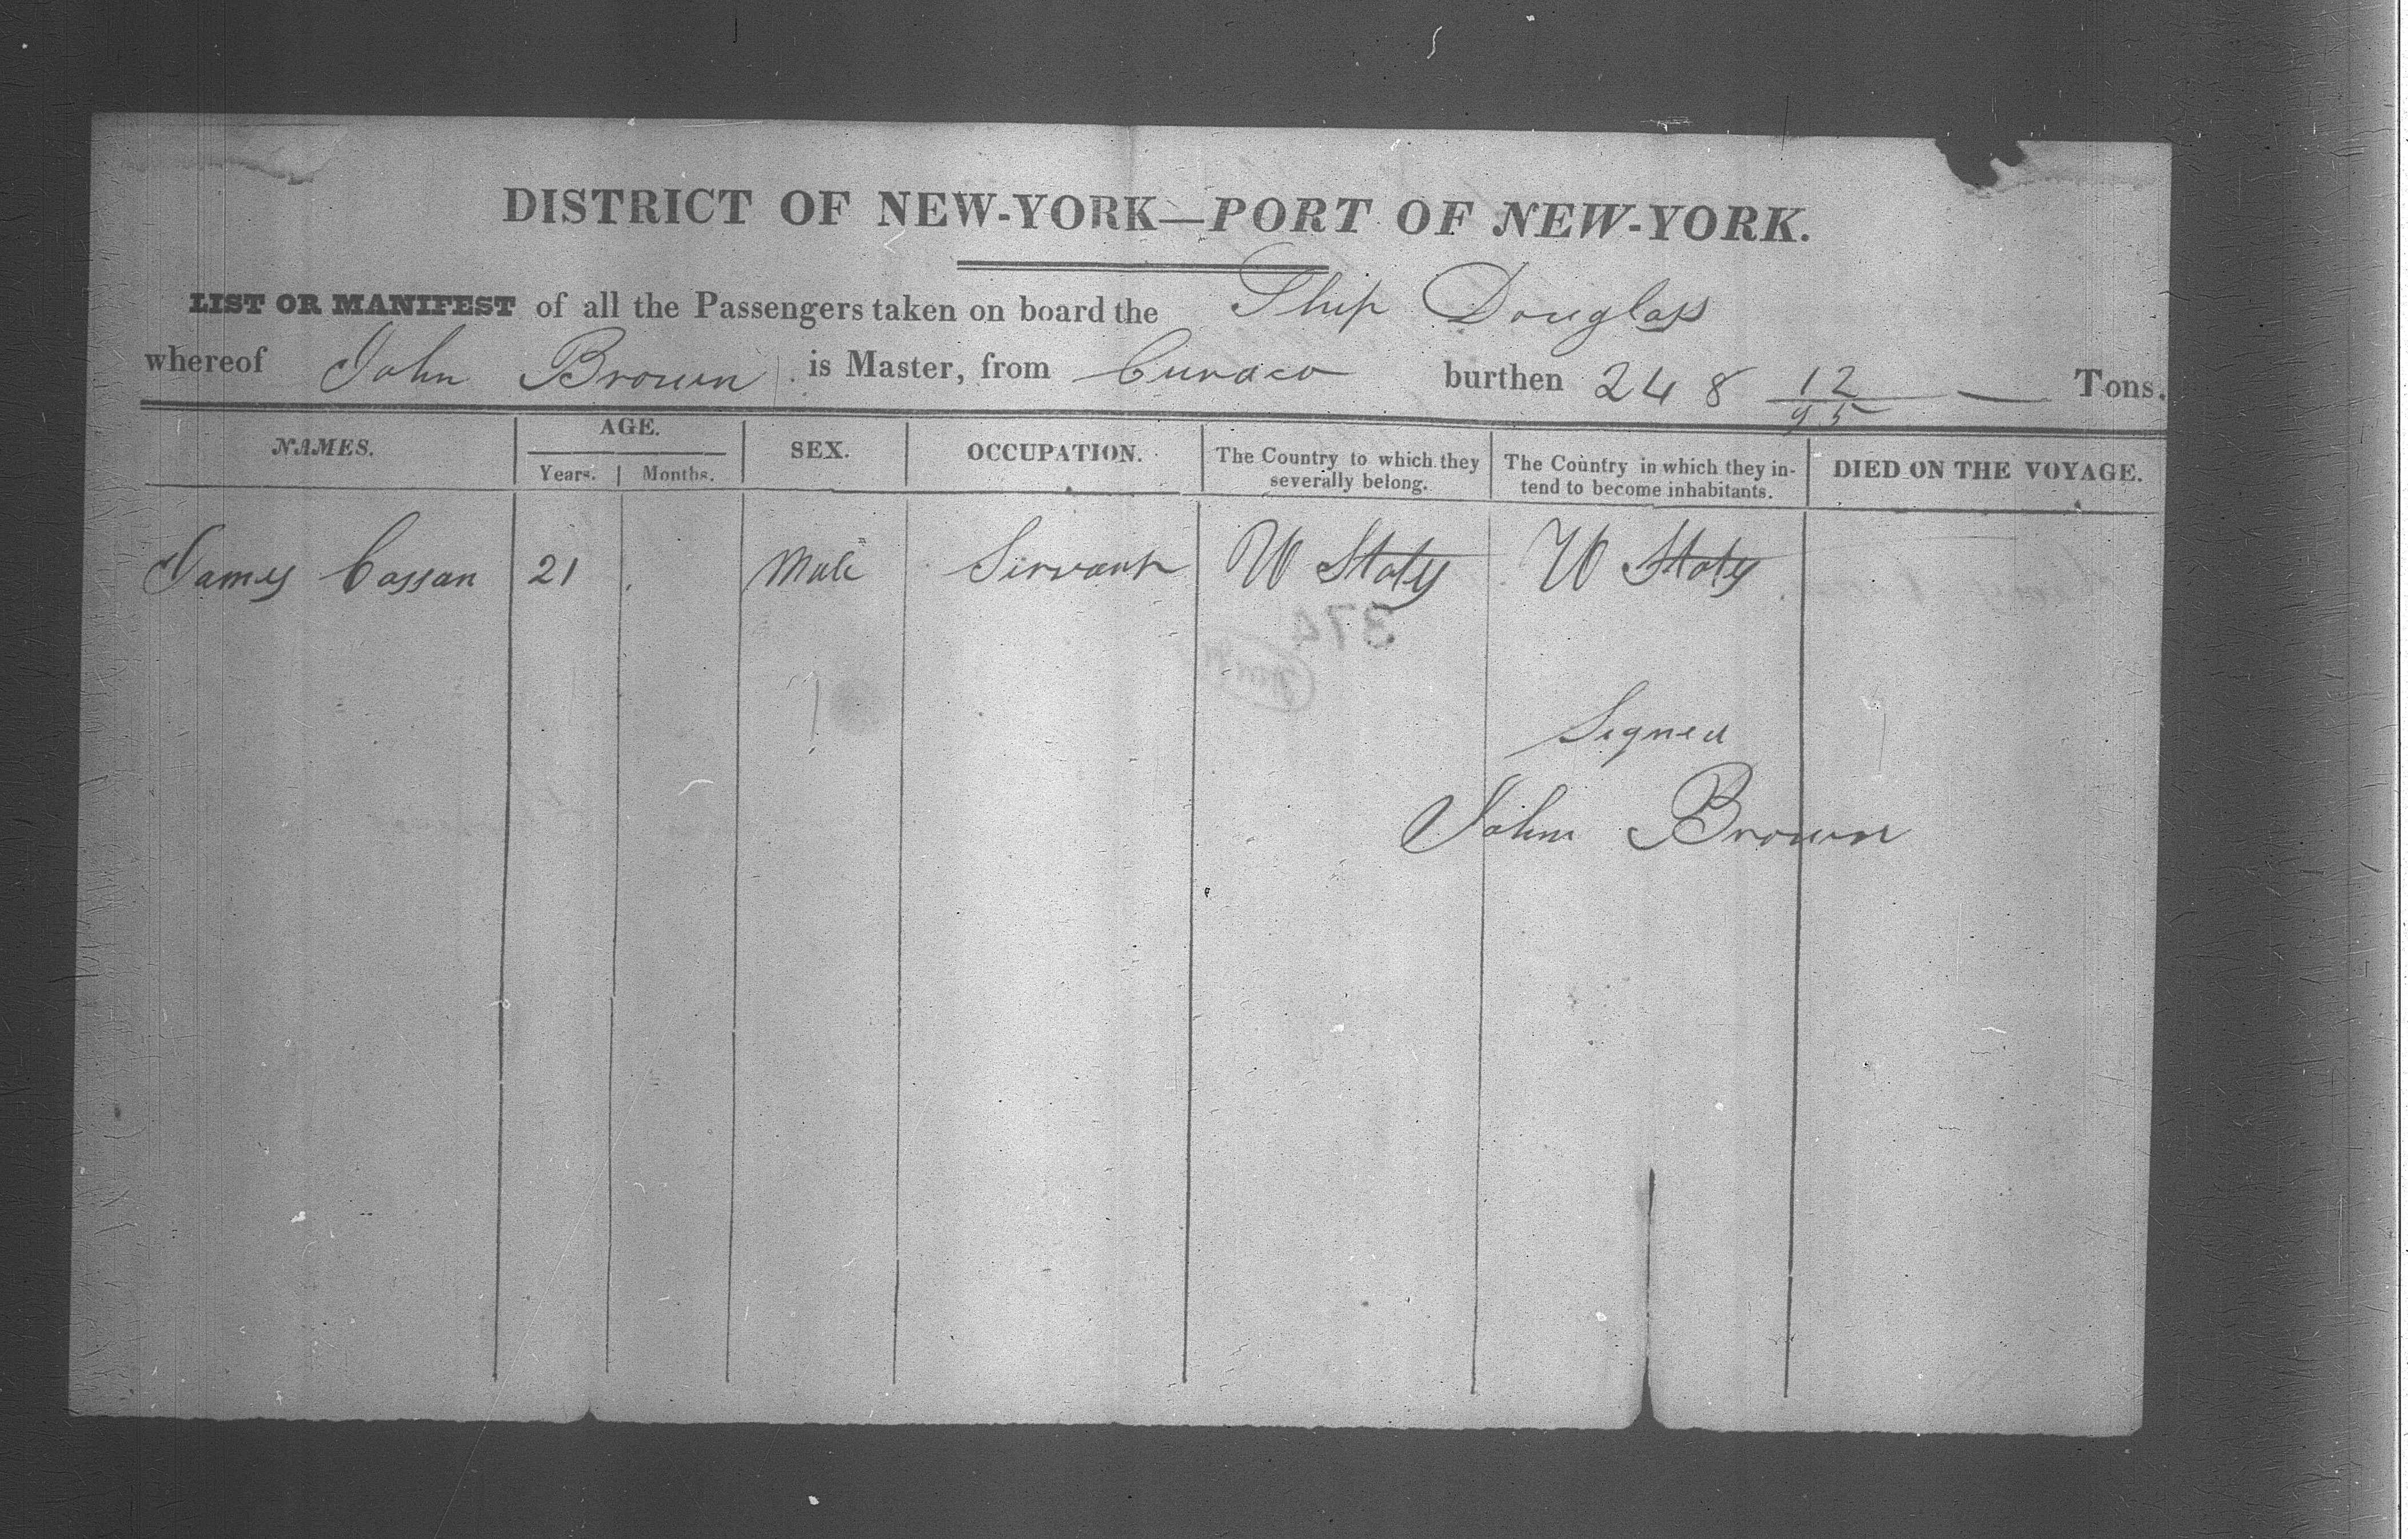 DISTRICT OF NEW-YORK—PORT OF NEW-YORK.
LIST OR MANIFEST of all the Passengers taken on board the Ship Douglass
whereof John Brown is Master, from Curaco burthen 248 12/95 Tons.
NAMES. AGE. SEX. OCCUPATION. The Country to which they severally belong. The Country in which they intend to become inhabitants. DIED ON THE VOYAGE.
Years. Months.
James Cassan 21 Male Servant U States U States
374
Signed
John Brown